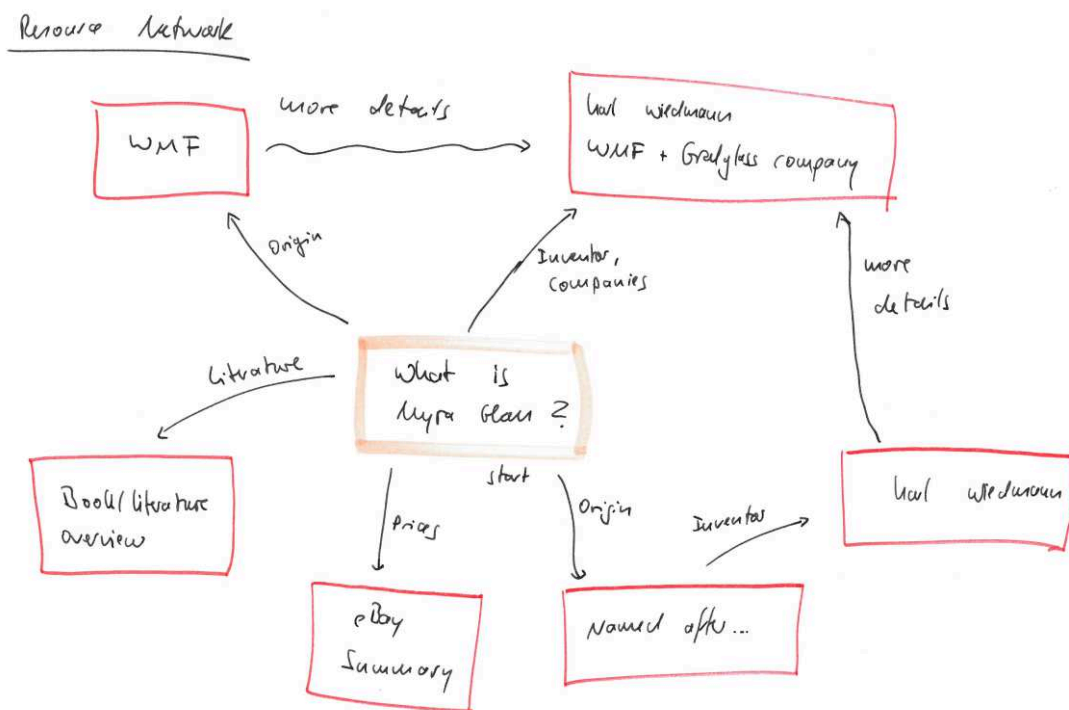 Resource Network
WMF
more details
Karl Wiedmann
WMF + Gralglass company
Origin
Inventor,
companies
more
details
Literature
What is
Myra Glass ?
start
Book/literature
overview
Prices
Origin
Inventor
Karl Wiedmann
eBay
Summary
Named after...